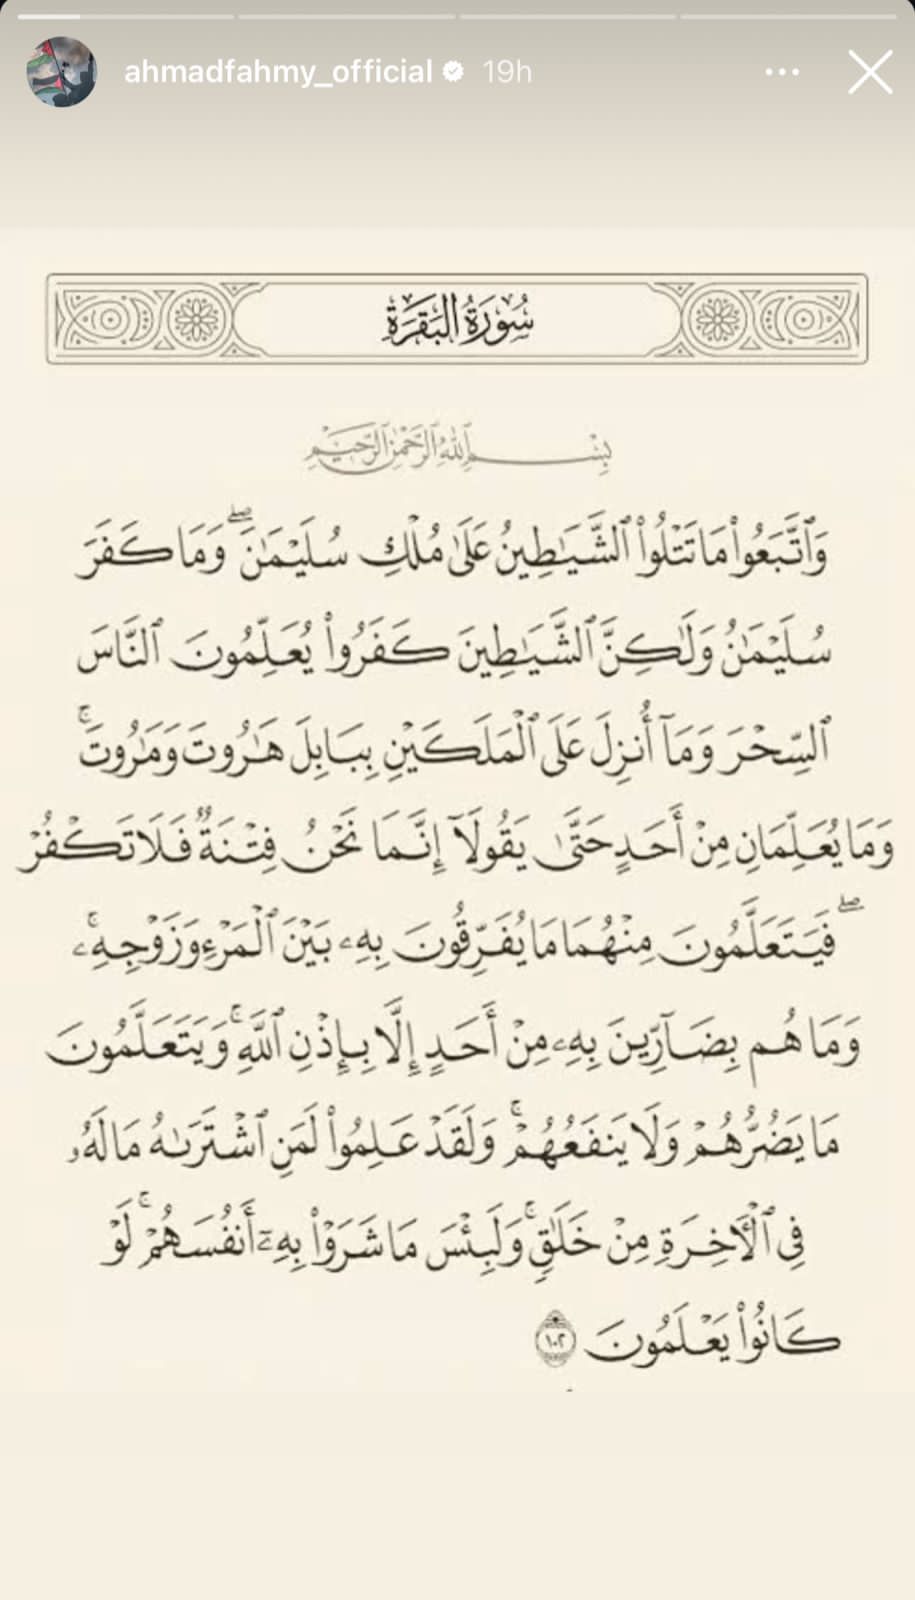 ahmadfahmy_official 19h
سُورَةُ البَقَرَةِ
بِسْمِ ٱللَّهِ ٱلرَّحْمَٰنِ ٱلرَّحِيمِ
وَٱتَّبَعُوا۟ مَا تَتْلُوا۟ ٱلشَّيَـٰطِينُ عَلَىٰ مُلْكِ سُلَيْمَـٰنَ ۖ وَمَا كَفَرَ
سُلَيْمَـٰنُ وَلَـٰكِنَّ ٱلشَّيَـٰطِينَ كَفَرُوا۟ يُعَلِّمُونَ ٱلنَّاسَ
ٱلسِّحْرَ وَمَآ أُنزِلَ عَلَى ٱلْمَلَكَيْنِ بِبَابِلَ هَـٰرُوتَ وَمَـٰرُوتَ ۚ
وَمَا يُعَلِّمَانِ مِنْ أَحَدٍ حَتَّىٰ يَقُولَآ إِنَّمَا نَحْنُ فِتْنَةٌ فَلَا تَكْفُرْ
ۖ فَيَتَعَلَّمُونَ مِنْهُمَا مَا يُفَرِّقُونَ بِهِۦ بَيْنَ ٱلْمَرْءِ وَزَوْجِهِۦ ۚ
وَمَا هُم بِضَآرِّينَ بِهِۦ مِنْ أَحَدٍ إِلَّا بِإِذْنِ ٱللَّهِ ۚ وَيَتَعَلَّمُونَ
مَا يَضُرُّهُمْ وَلَا يَنفَعُهُمْ ۚ وَلَقَدْ عَلِمُوا۟ لَمَنِ ٱشْتَرَىٰهُ مَا لَهُۥ
فِى ٱلْـَٔاخِرَةِ مِنْ خَلَـٰقٍ ۚ وَلَبِئْسَ مَا شَرَوْا۟ بِهِۦٓ أَنفُسَهُمْ ۚ لَوْ
كَانُوا۟ يَعْلَمُونَ ١٠٢